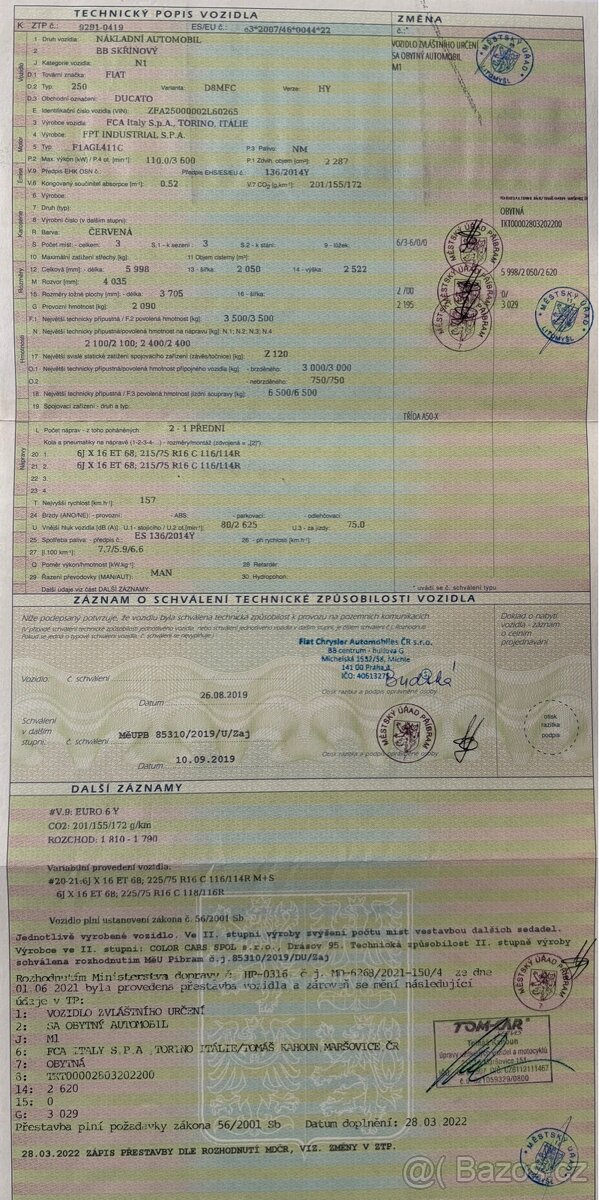 TECHNICKÝ POPIS VOZIDLA
ZMĚNA
K ZTP č.: 9291-0419 ES/EU č.: e3*2007/46*0044*22
č.:*
1 Druh vozidla: NÁKLADNÍ AUTOMOBIL
VOZIDLO ZVLÁŠTNÍHO URČENÍ
2 BB SKŘÍŇOVÝ
SA OBYTNÝ AUTOMOBIL
J Kategorie vozidla: N1
M1
D.1 Tovární značka: FIAT
D.2 Typ: 250 Varianta: D8MFC Verze: HY
D.3 Obchodní označení: DUCATO
E Identifikační číslo vozidla (VIN): ZFA25000002L60265
3 Výrobce vozidla: FCA Italy S.p.A., TORINO, ITÁLIE
4 Výrobce: FPT INDUSTRIAL S.P.A.
5 Typ: F1AGL411C P.3 Palivo: NM
P.2 Max. výkon [kW] / P.4 ot. [min⁻¹]: 110.0/3 600 P.1 Zdvih. objem [cm³]: 2 287
V.9 Předpis EHK OSN č.: Předpis EHS/ES/EU č.: 136/2014Y
V.6 Korigovaný součinitel absorpce [m⁻¹]: 0.52 V.7 CO₂ [g.km⁻¹]: 201/155/172
6 Výrobce:
7 Druh (typ):
OBYTNÁ
8 Výrobní číslo (v dalším stupni):
TKT00002803202200
R Barva: ČERVENÁ
S Počet míst - celkem: 3 S.1 - k sezení: 3 S.2 - k stání: 9 - lůžek:
6/3-6/0/0
10 Maximální zatížení střechy [kg]: 11 Objem cisterny [m³]:
12 Celková [mm] - délka: 5 998 13 - šířka: 2 050 14 - výška: 2 522
5 998/2 050/2 620
M Rozvor [mm]: 4 035
15 Rozměry ložné plochy [mm] - délka: 3 705 16 - šířka:
2 700
0/
G Provozní hmotnost [kg]: 2 090
2 195
3 029
F.1 Největší technicky přípustná / F.2 povolená hmotnost [kg]: 3 500/3 500
N Největší technicky přípustná/povolená hmotnost na nápravu [kg]: N.1; N.2; N.3; N.4
2 100/2 100; 2 400/2 400
17 Největší svislé statické zatížení spojovacího zařízení (závěs/točnice) [kg]: Z 120
O.1 Největší technicky přípustná/povolená hmotnost přípojného vozidla [kg] - brzděného: 3 000/3 000
O.2 - nebrzděného: 750/750
18 Největší technicky přípustná / F.3 povolená hmotnost jízdní soupravy [kg]: 6 500/6 500
19 Spojovací zařízení - druh a typ:
TŘÍDA A50-X
L Počet náprav - z toho poháněných: 2 - 1 PŘEDNÍ
Kola a pneumatiky na nápravě (1-2-3-4-...) - rozměry/montáž (zdvojená = „[2]“):
20 1. 6J X 16 ET 68; 215/75 R16 C 116/114R
21 2. 6J X 16 ET 68; 215/75 R16 C 116/114R
22 3.
23 4
T Nejvyšší rychlost [km.h⁻¹]: 157
24 Brzdy (ANO/NE): - provozní: - ABS: - parkovací: - odlehčovací:
U Vnější hluk vozidla [dB (A)]: U.1 - stojícího / U.2 ot.[min⁻¹]: 80/2 625 U.3 - za jízdy: 75.0
25 Spotřeba paliva - předpis č.: ES 136/2014Y 26 - při rychlosti [km.h⁻¹]:
27 [l.100 km⁻¹]: 7.7/5.9/6.6
Q Poměr výkon/hmotnost [kW.kg⁻¹]: 28 Retardér:
29 Řazení převodovky (MAN/AUT): MAN 30 Hydropohon:
Další údaje viz část DALŠÍ ZÁZNAMY:
* uvádí se č. schválení typu
ZÁZNAM O SCHVÁLENÍ TECHNICKÉ ZPŮSOBILOSTI VOZIDLA
Níže podepsaný potvrzuje, že vozidlu byla schválena technická způsobilost k provozu na pozemních komunikacích
Doklad o nabytí vozidla - záznam o celním projednávání
Fiat Chrysler Automobiles ČR s.r.o.
BB centrum - budova G
Michelská 1552/58, Michle
141 00 Praha 4
IČO: 40613275
Vozidlo: č. schválení
26.08.2019
Datum
Otisk razítka a podpis oprávněné osoby
Schválení v dalším stupni: č. schválení MěUPB 85310/2019/U/Zaj
10.09.2019
Datum
Otisk razítka a podpis oprávněné osoby
otisk razítka podpis
MĚSTSKÝ ÚŘAD PŘÍBRAM
MĚSTSKÝ ÚŘAD LITOMYŠL
DALŠÍ ZÁZNAMY
#V.9: EURO 6 Y
CO2: 201/155/172 g/km
ROZCHOD: 1 810 - 1 790
Variabilní provedení vozidla:
#20-21:6J X 16 ET 68; 225/75 R16 C 116/114R M+S
6J X 16 ET 68; 225/75 R16 C 118/116R
Vozidlo plní ustanovení zákona č. 56/2001 Sb.
Jednotlivě vyrobené vozidlo. Ve II. stupni výroby zvýšení počtu míst vestavbou dalších sedadel.
Výrobce ve II. stupni: COLOR CARS SPOL s.r.o., Drásov 95. Technická způsobilost II. stupně výroby
schválena rozhodnutím MěU Příbram č.j.85310/2019/DU/Zaj
Rozhodnutím Ministerstva dopravy č. HP-0316 č j. MD-6268/2021-150/4 ze dne
01.06 2021 byla provedena přestavba vozidla a zároveň se mění následující
údaje v TP:
1: VOZIDLO ZVLÁŠTNÍHO URČENÍ
2: SA OBYTNÝ AUTOMOBIL
J: M1
6: FCA ITALY S.P.A., TORINO ITÁLIE/TOMÁŠ KAHOUN MARŠOVICE ČR
7: OBYTNÁ
8: TKT00002803202200
14: 2 620
15: 0
G: 3 029
TOM-CAR
Tomáš Kahoun
úpravy vozidel a motocyklů
Maršovice 151
Přestavba plní požadavky zákona 56/2001 Sb Datum doplnění: 28.03 2022
28.03.2022 ZÁPIS PŘESTAVBY DLE ROZHODNUTÍ MDČR, VIZ. ZMĚNY V ZTP.
@( Bazoš.cz